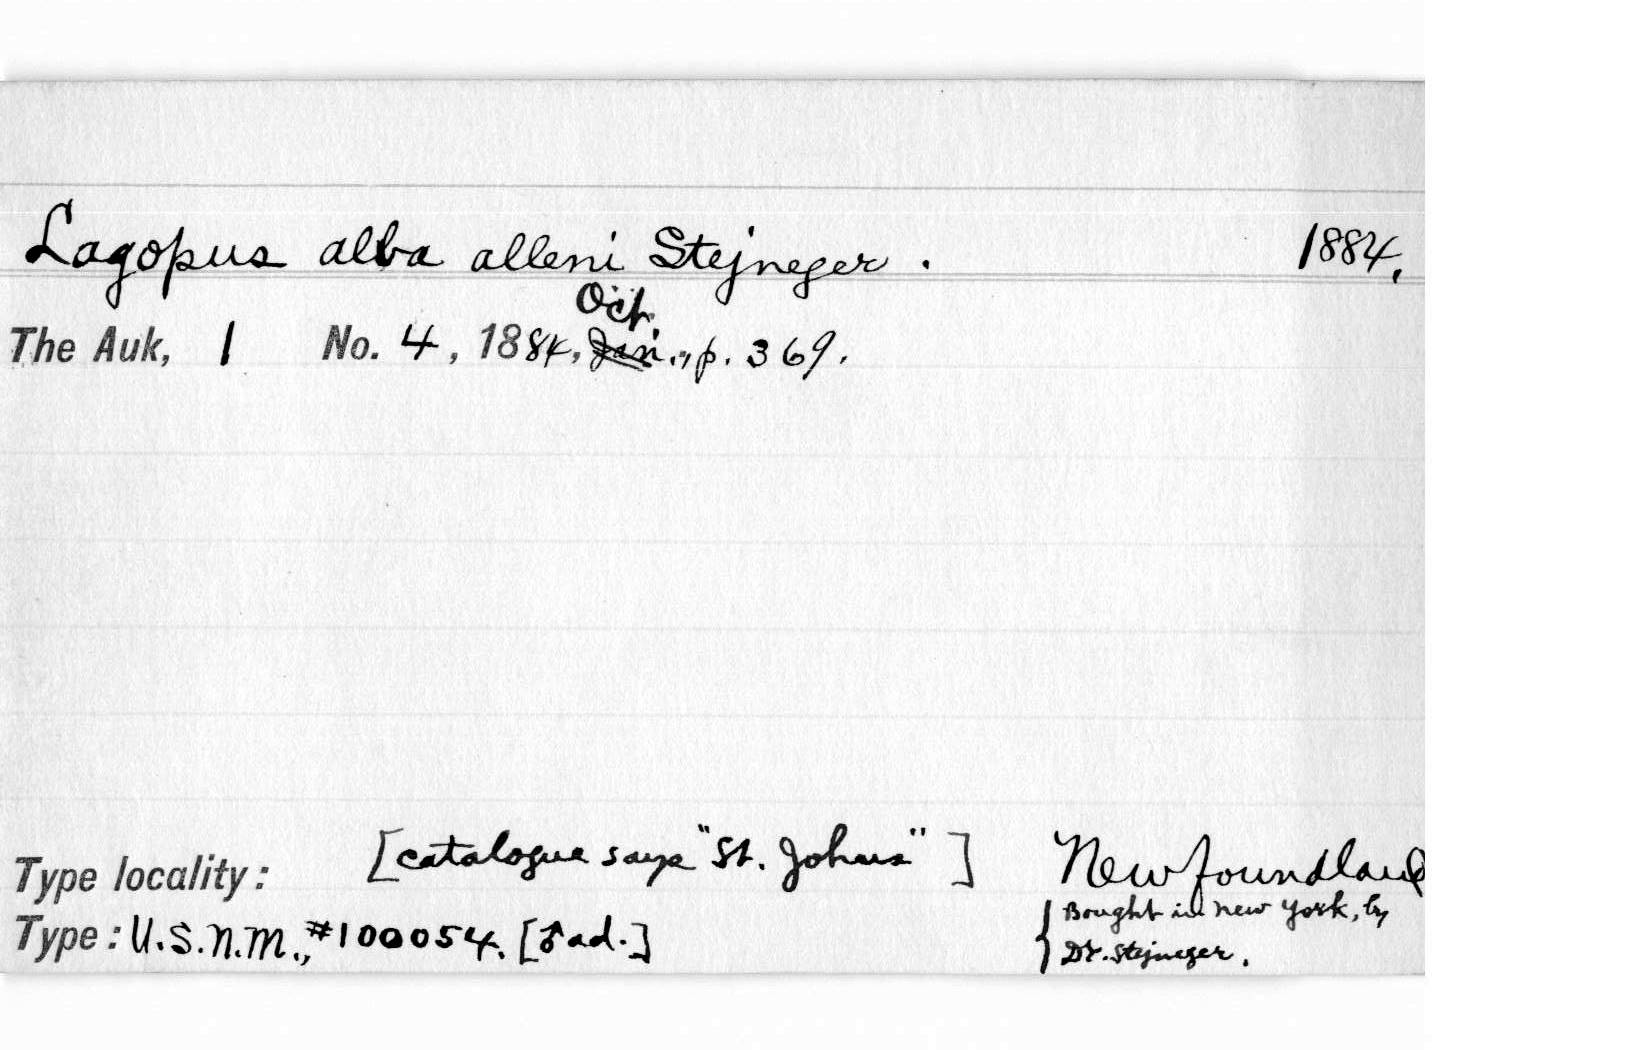 Lagopus alba alleni Stejneger. 1884.
Oct.
The Auk, 1 No. 4, 1884, Jan., p. 369.
Type locality: [catalogue says "St. Johns"] Newfoundland
Bought in New York, by
Type: U.S.N.M., #100054. [♂ ad.]
Dr. Stejneger.